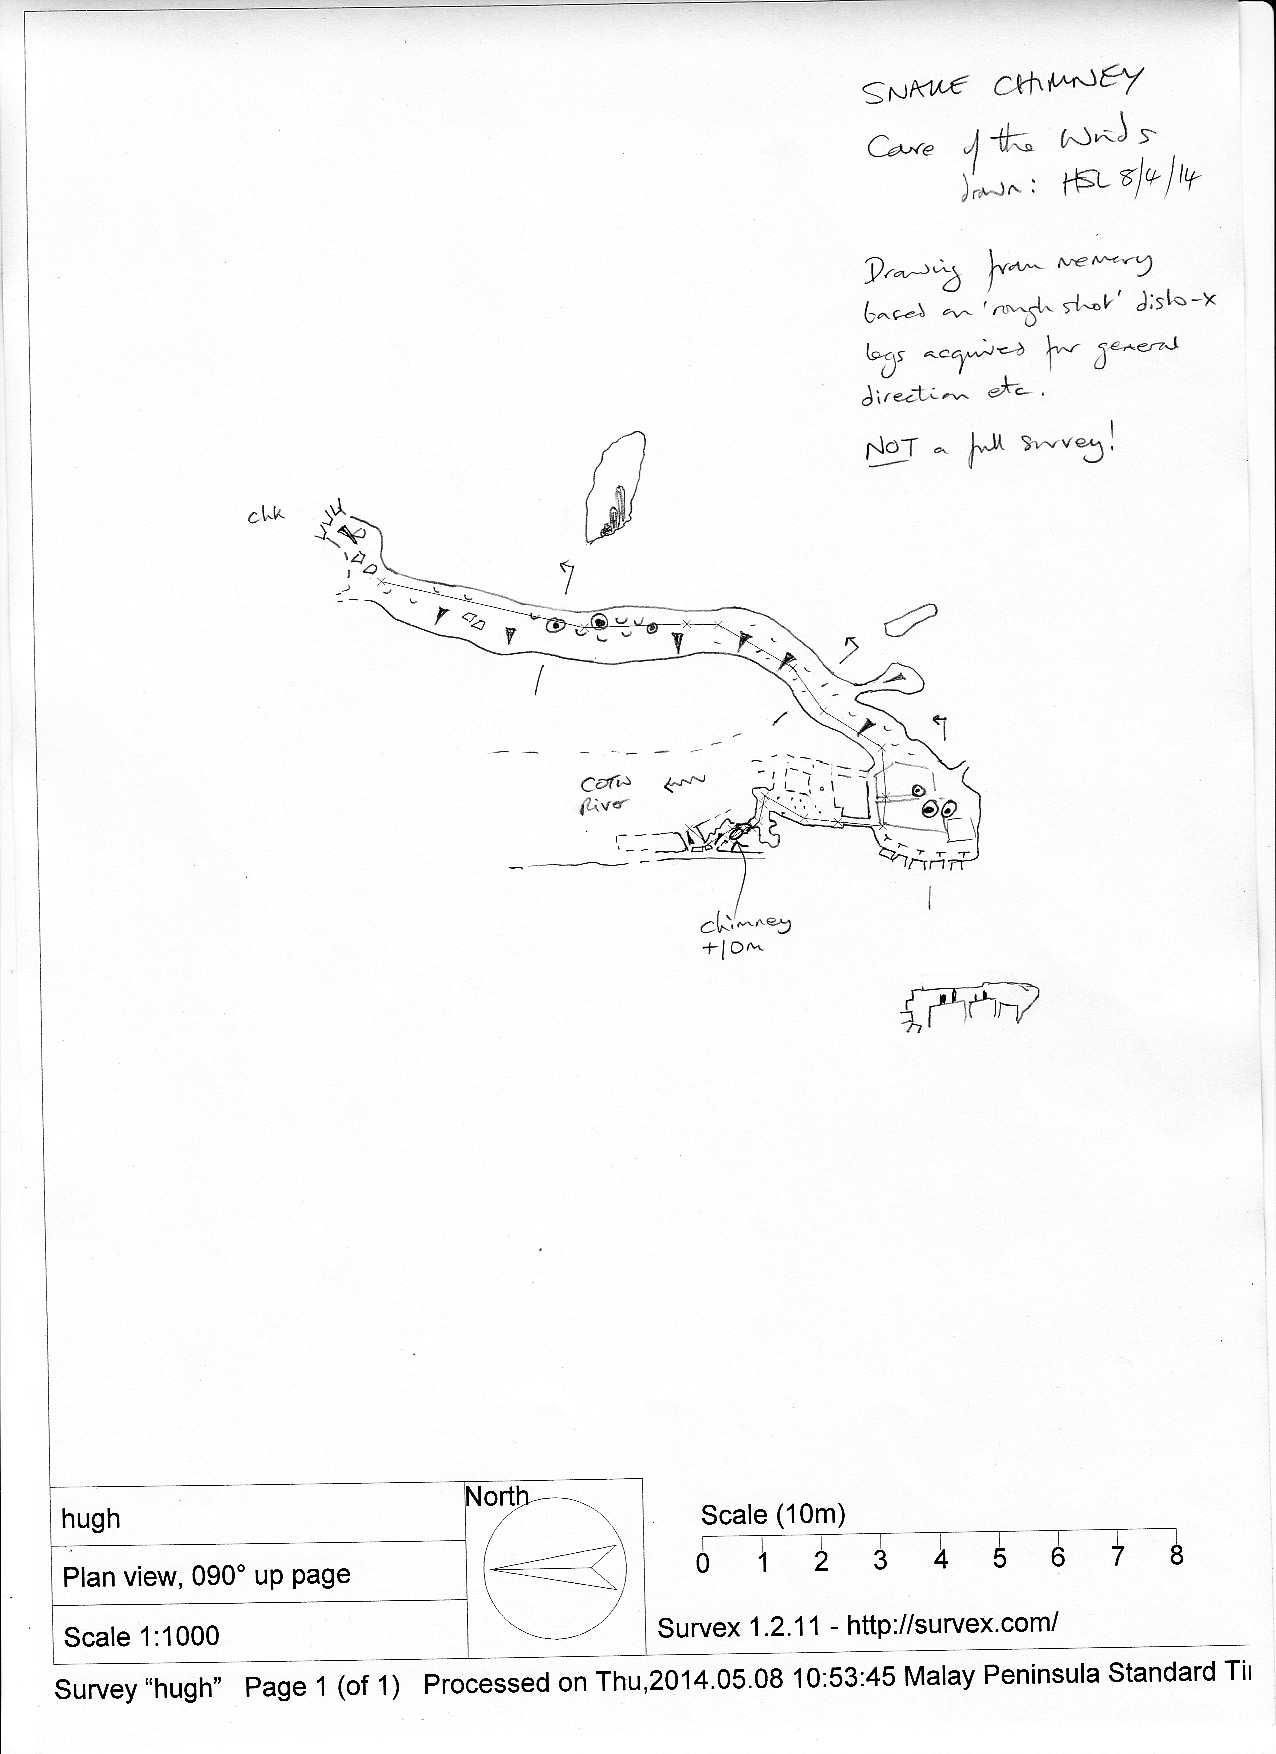 SNAKE CHIMNEY
Cave of the Winds
drawn: HSL 8/4/14
Drawing from memory
based on 'rough shot' disto-x
legs acquired for general
direction etc.
NOT a full survey!
chk
COTW
River
chimney
+10m
hugh
Plan view, 090° up page
Scale 1:1000
North
Scale (10m)
0 1 2 3 4 5 6 7 8
Survex 1.2.11 - http://survex.com/
Survey “hugh” Page 1 (of 1) Processed on Thu,2014.05.08 10:53:45 Malay Peninsula Standard Ti